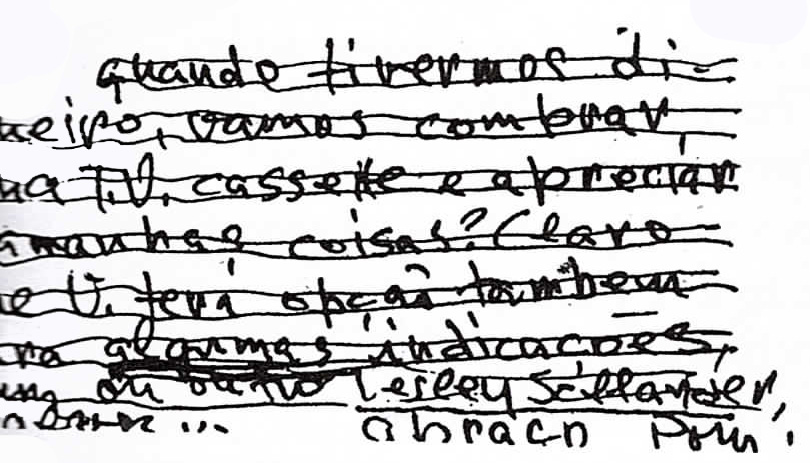 quando tivermos di-
neiro, vamos comprar,
ma T.V. cassette e apreciar
manhas coisas? Claro
e V. terá opção tambem
ra algumas indicações,
um ou outro Lesley Selander,
... abraço